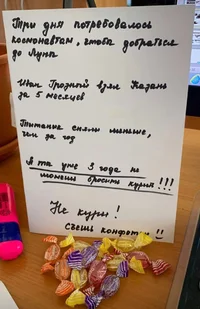 Три дня потребовалось
космонавтам, чтоба добраться
до Луны
Иван Грозный взял Казань
за 5 месяцев
Титаник сняли меньше,
чем за год
А ты уже 3 года не
можешь бросить курить!!!
Не кури!
Съешь конфетку!!